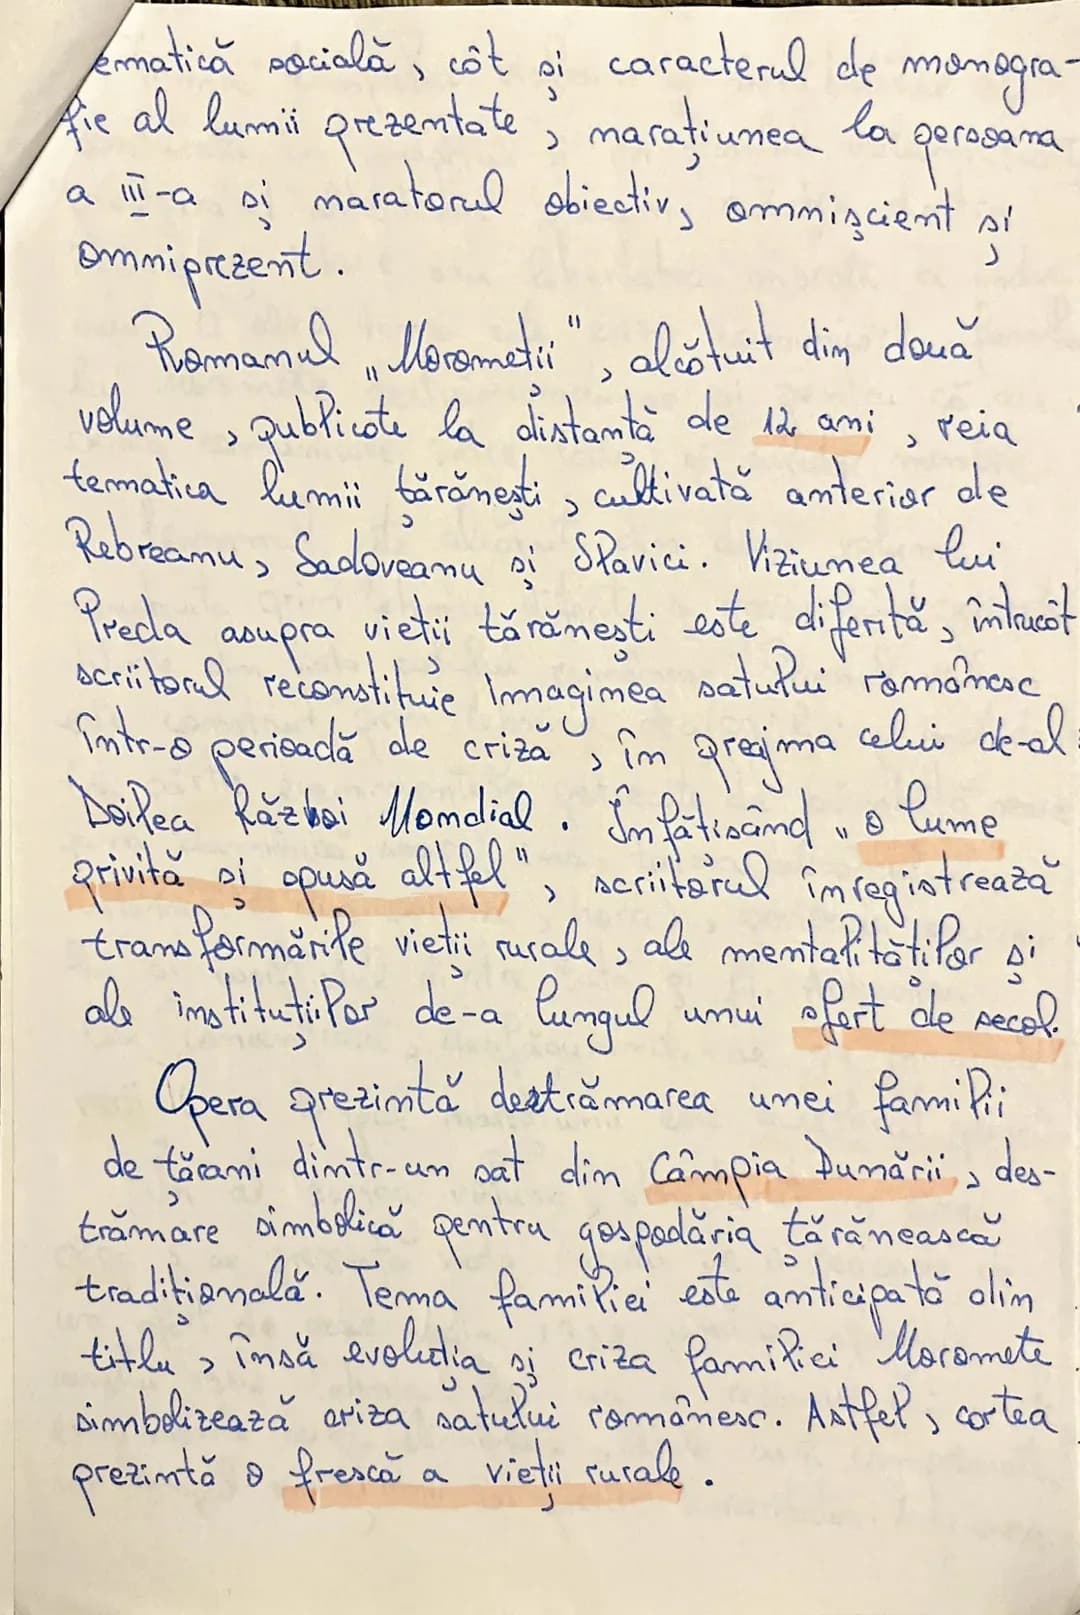 ematică socială, cât și caracterul de monogra-
fie al lumii prezentate, narațiunea la persoana
a III-a și naratorul obiectiv, omnișcient și
omniprezent.
Romanul „Moromeții", alcătuit din două
volume, publicate la distanță de 12 ani, reia
tematica lumii țărănești, cultivată anterior de
Rebreanu, Sadoveanu și Slavici. Viziunea lui
Preda asupra vieții țărănești este diferită, întrucât
scriitorul reconstituie imaginea satului românesc
într-o perioadă de criză, în preajma celui de-al
Doilea Război Mondial. Înfățisând „o lume
privită și opusă altfel", scriitorul înregistrează
transformările vieții rurale, ale mentalităților și
ale instituțiilor de-a lungul unui sfert de secol.
Opera prezintă destrămarea unei familii
de țărani dintr-un sat din Câmpia Dunării, des-
trămare simbolică pentru gospodăria țărănească
tradițională. Tema familiei este anticipată din
titlu, însă evoluția și criza familiei Moromete
simbolizează criza satului românesc. Astfel, cartea
prezintă o frescă a vieții rurale.